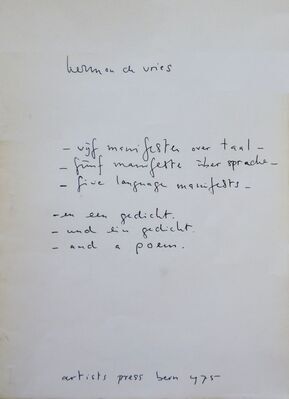 herman de vries
– vijf manifesten over taal –
– fünf manifeste über sprache –
– five language manifests –
– en een gedicht.
– und ein gedicht.
– and a poem.
artists press bern 1975